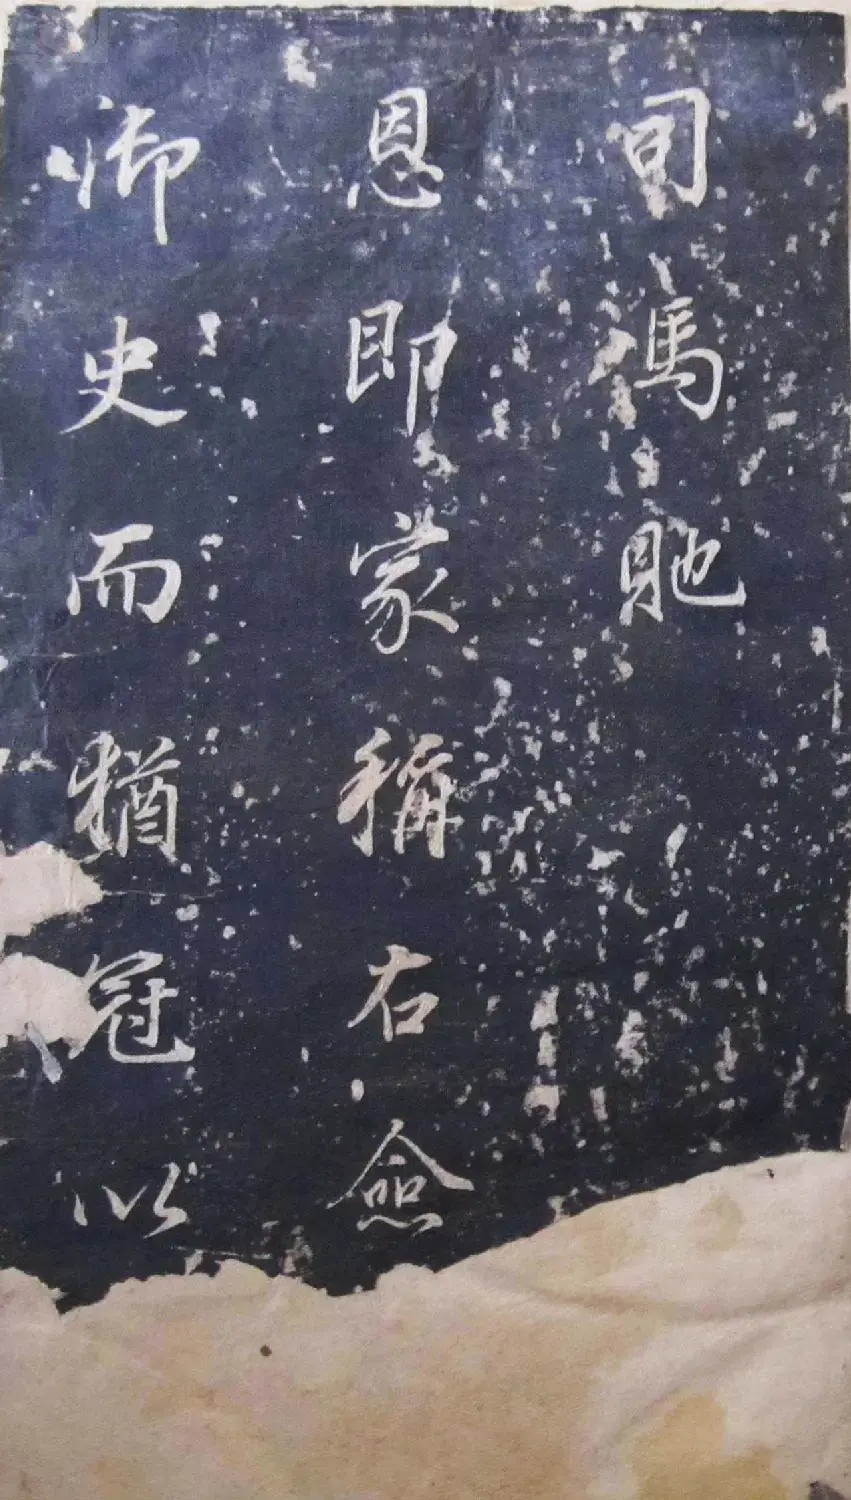 司馬貤
恩即家稱右僉
御史而猶冠以